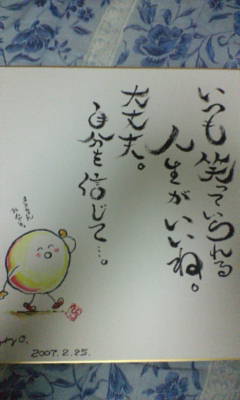 いつも笑っていられる
人生がいいね。
大丈夫。
自分を信じて…。
2007.2.25.